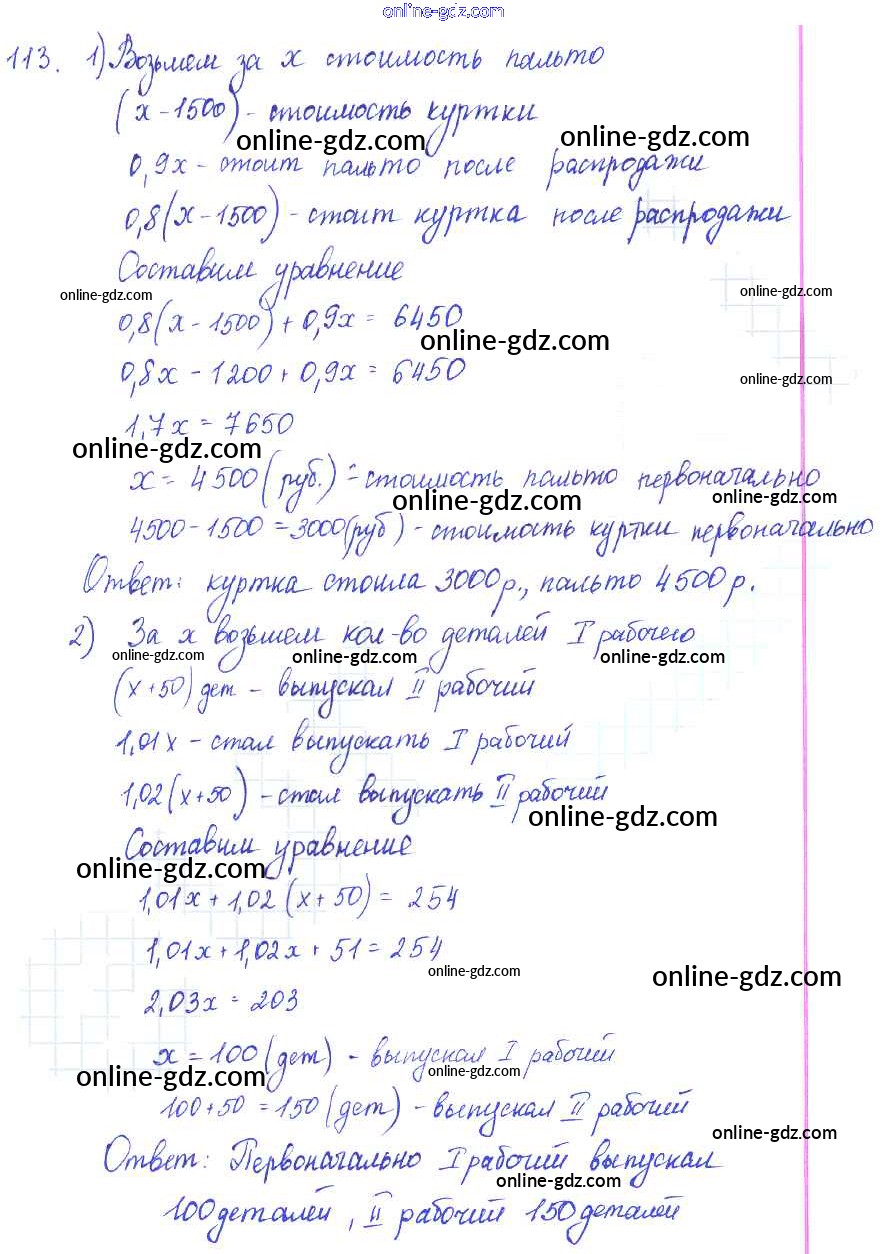 online-gdz.com
113. 1) Возьмем за х стоимость пальто
(х - 1500) - стоимость куртки
online-gdz.com online-gdz.com
0,9х - стоит пальто после распродажи
0,8(х - 1500) - стоит куртка после распродажи
Составим уравнение
online-gdz.com online-gdz.com
0,8(х - 1500) + 0,9х = 6450
online-gdz.com
0,8х - 1200 + 0,9х = 6450
online-gdz.com
1,7х = 7650
online-gdz.com
х = 4500 (руб.) - стоимость пальто первоначально
online-gdz.com online-gdz.com
4500 - 1500 = 3000 (руб) - стоимость куртки первоначально
Ответ: куртка стоила 3000р., пальто 4500р.
2) За х возьмем кол-во деталей I рабочего
online-gdz.com online-gdz.com online-gdz.com
(х + 50) дет - выпускал II рабочий
1,01х - стал выпускать I рабочий
1,02(х + 50) - стал выпускать II рабочий
online-gdz.com
Составим уравнение
online-gdz.com
1,01х + 1,02(х + 50) = 254
1,01х + 1,02х + 51 = 254
online-gdz.com online-gdz.com
2,03х = 203
х = 100 (дет) - выпускал I рабочий
online-gdz.com online-gdz.com
100 + 50 = 150 (дет) - выпускал II рабочий
online-gdz.com
Ответ: Первоначально I рабочий выпускал
online-gdz.com
100 деталей, II рабочий 150 деталей